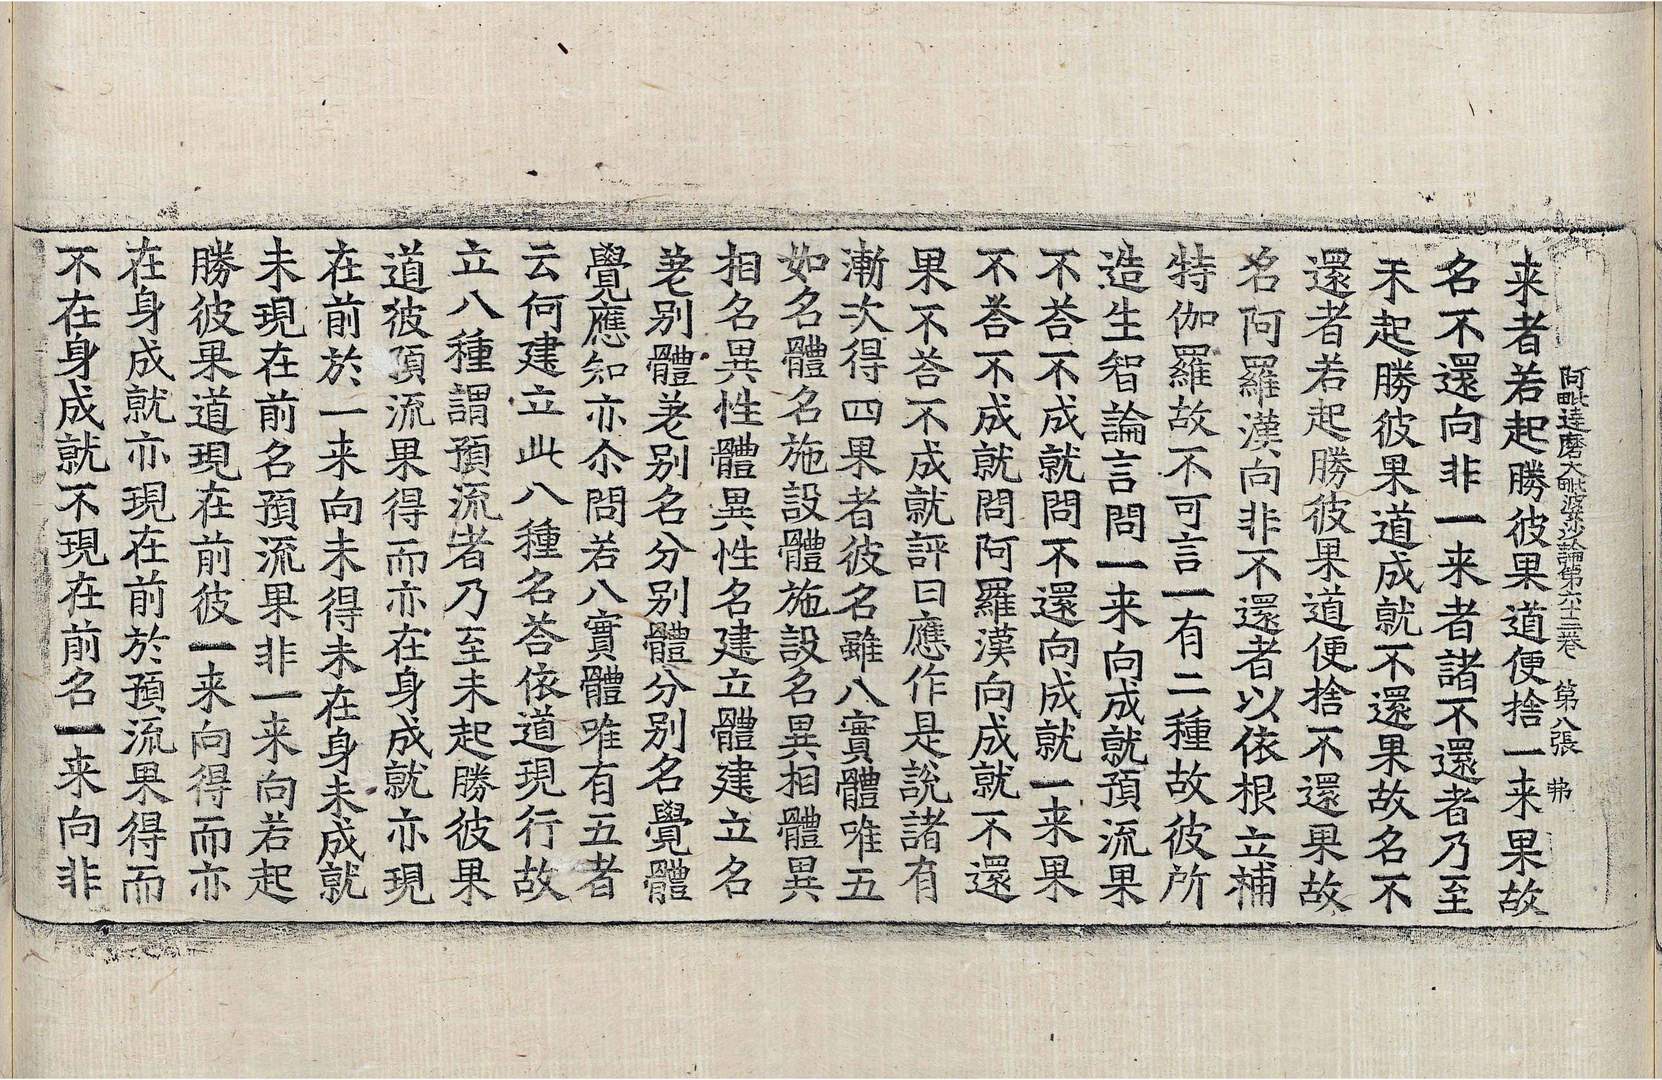 阿毗達磨大毗婆沙論第六十三卷　第八張　弗
来者若起勝彼果道便捨一来果故
名不還向非一来者諸不還者乃至
未起勝彼果道成就不還果故名不
還者若起勝彼果道便捨不還果故
名阿羅漢向非不還者以依根立補
特伽羅故不可言一有二種故彼所
造生智論言問一来向成就預流果
不荅不成就問不還向成就一来果
不荅不成就問阿羅漢向成就不還
果不荅不成就評曰應作是說諸有
漸次得四果者彼名雖八實體唯五
如名體名施設體施設名異相體異
相名異性體異性名建立體建立名
差别體差别名分别體分别名覺體
覺應知亦尒問若八實體唯有五者
云何建立此八種名荅依道現行故
立八種謂預流者乃至未起勝彼果
道彼預流果得而亦在身成就亦現
在前於一来向未得未在身未成就
未現在前名預流果非一来向若起
勝彼果道現在前彼一来向得而亦
在身成就亦現在前於預流果得而
不在身成就不現在前名一来向非